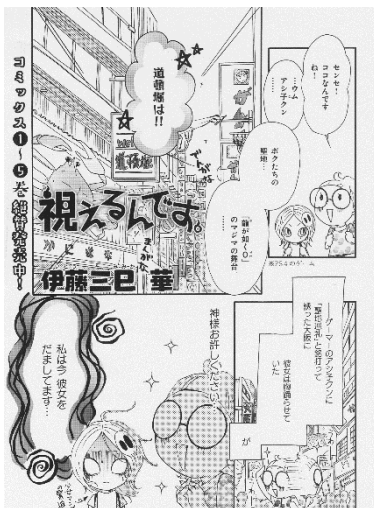 センセ！
ココなんです
ね！
……ウム
アシ子クン
……
ボクたちの
聖地…
『龍が如く０』
のマジマの舞台
……
道頓堀は!!
視えるんです。
伊藤三巳華
コミックス❶〜❺巻絶賛発売中！
ゲーマーのアシ子クンに
「聖地巡礼」と銘打って
誘った大阪に
彼女は胸踊らせて
いた
が
神様お許しください
私は今彼女を
だましてます…